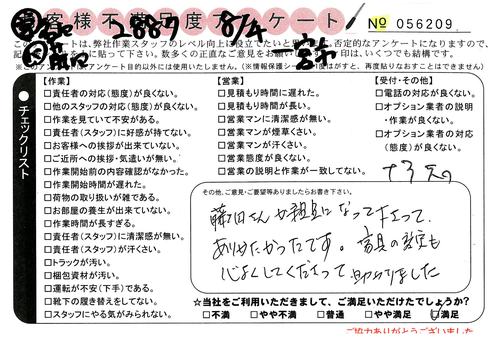 客様不満足度アンケート
2887 8/4
№ 056209
このアンケートは、弊社作業スタッフのレベル向上に役立てたいと思い、否定的なアンケートになりますので、
※このアンケートはアンケート目的以外には使用いたしません。
チェックリスト
【作業】
□責任者の対応(態度)が良くない。
□他のスタッフの対応(態度)が良くない。
□作業を見ていて不安がある。
□責任者(スタッフ)に好感が持てない。
□お客様への挨拶が出来ていない。
□ご近所への挨拶・気遣いが無い。
□作業開始前の内容確認がなかった。
□作業開始時間が遅れた。
□荷物の取り扱いが雑である。
□お部屋の養生が出来ていない。
□作業時間が長すぎる。
□責任者(スタッフ)に清潔感が無い。
□責任者(スタッフ)が汗くさい。
□トラックが汚い。
□梱包資材が汚い。
□運転が不安(下手)である。
□靴下の履き替えをしてない。
□スタッフにやる気がみられない。
【営業】
□見積もり時間に遅れた。
□見積もり時間が長い。
□営業マンに清潔感が無い。
□営業マンが煙草くさい。
□営業マンが汗くさい。
□営業態度が良くない。
□営業の説明と作業が一致してない。
【受付・その他】
□電話の対応が良くない。
□オプション業者の説明
・作業が良くない。
□オプション業者の対応
(態度)が良くない。
その他、ご意見・ご要望等ありましたらお書き下さい。
さんが親身になって下さって、
ありがたかったです。家具の設定も
心よくしてくださって助かりました
☆当社をご利用いただきまして、ご満足いただけたでしょうか?
□不満 □やや不満 □普通 □やや満足 □満足
ご協力ありがとうございました